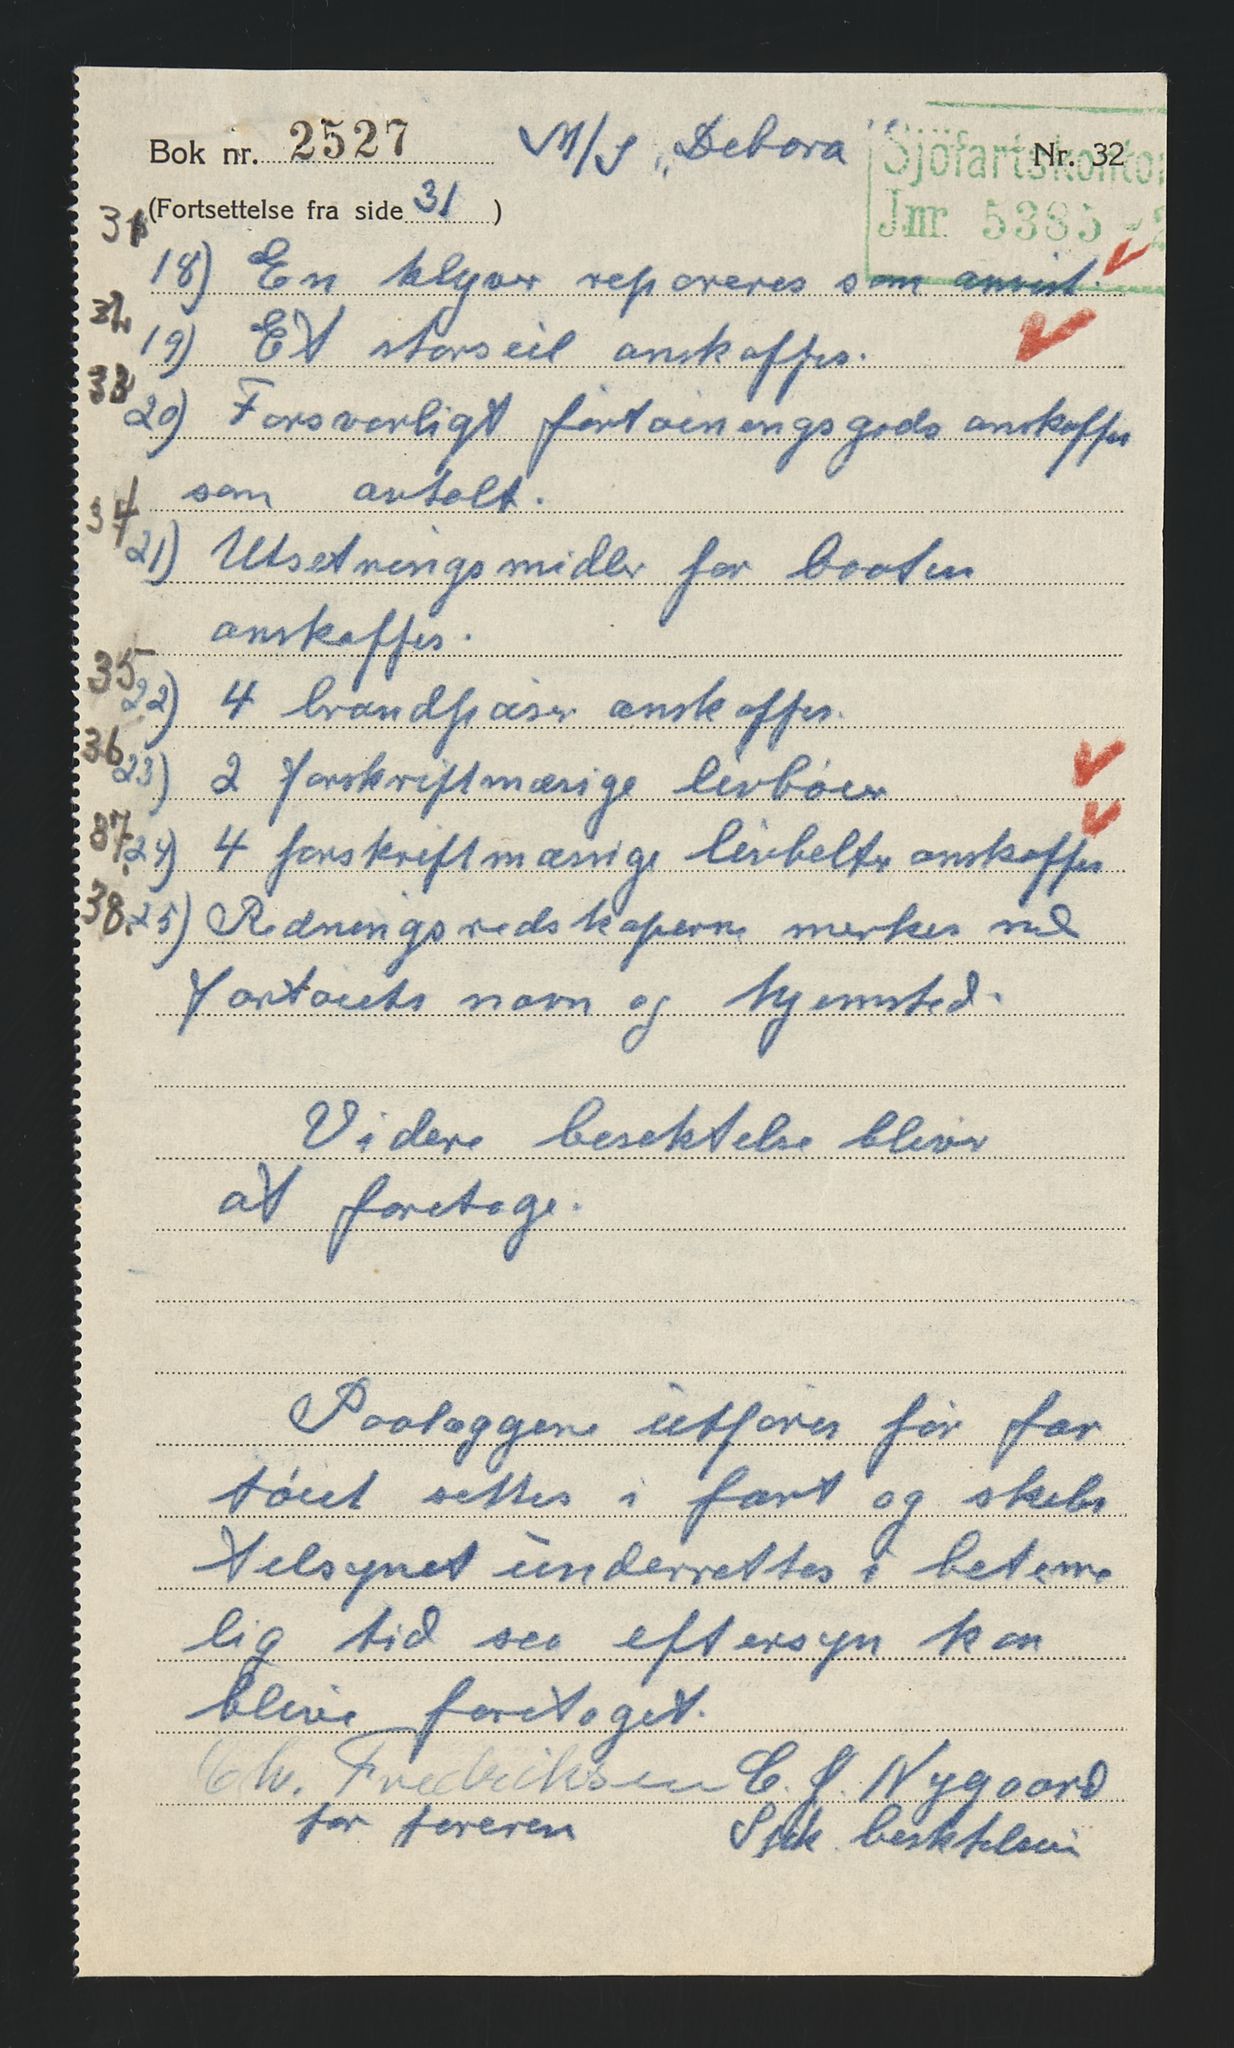 Bok nr. 2527 M/S „Debora" Nr. 32
Sjöfartskontor
(Fortsettelse fra side 31 )
Jnr. 5385 - 2
31 18) En klyver repareres som anvist.
32 19) Et storseil anskaffes.
33 20) Forsvarligt fortøiningsgods anskaffes
som avtalt.
34 21) Utsetningsmidler for baaten
anskaffes.
35 22) 4 brandpøser anskaffes.
36 23) 2 forskriftmæsige livbøier
37. 24) 4 forskriftmæssige livbelter anskaffes
38. 25) Redningsredskaperne merkes med
fartøiets navn og hjemsted.
Videre besektelse bliver
at foretage.
Paalæggene utføres før far
tøiet settes i fart og skibs
tilsynet underrettes i betime
lig tid saa eftersyn kan
blive foretaget.
Chr. Fredriksen C. J. Nygaard
for føreren